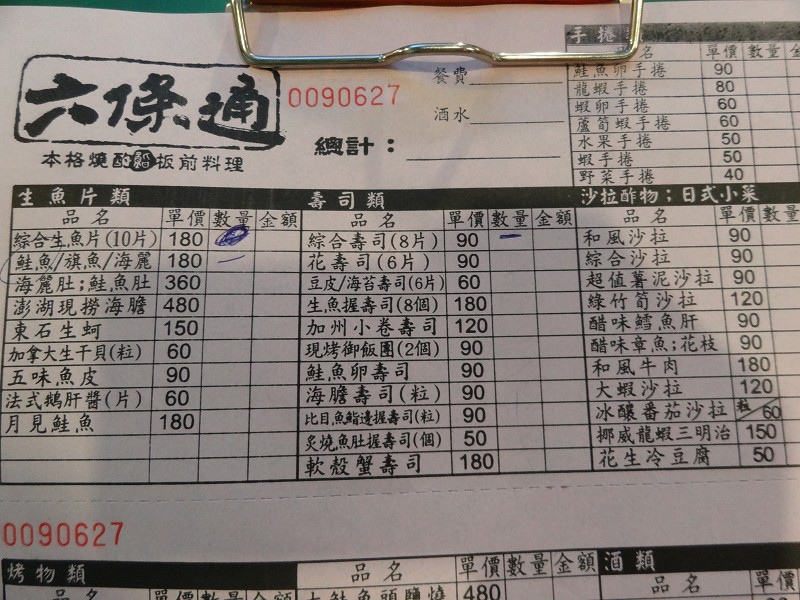 六條通
本格燒酌 板前料理
0090627
餐費
酒水
總計：
手捲
品名 單價 數量
鮭魚卵手捲 90
龍蝦手捲 80
蝦卵手捲 60
蘆筍蝦手捲 60
水果手捲 50
蝦手捲 50
野菜手捲 40
生魚片類
品名 單價 數量 金額
綜合生魚片(10片) 180
鮭魚/旗魚/海麗 180
海麗肚;鮭魚肚 360
澎湖現撈海膽 480
東石生蚵 150
加拿大生干貝(粒) 60
五味魚皮 90
法式鵝肝醬(片) 60
月見鮭魚 180
壽司類
品名 單價 數量 金額
綜合壽司(8片) 90
花壽司(6片) 90
豆皮/海苔壽司(6片) 60
生魚握壽司(8個) 180
加州小卷壽司 120
現烤御飯團(2個) 90
鮭魚卵壽司 90
海膽壽司(粒) 90
比目魚鰭邊握壽司(粒) 90
炙燒魚肚握壽司(個) 50
軟殼蟹壽司 180
沙拉酢物;日式小菜
品名 單價 數量
和風沙拉 90
綜合沙拉 90
超值薯泥沙拉 90
綠竹筍沙拉 120
醋味鱈魚肝 90
醋味章魚;花枝 90
和風牛肉 180
大蝦沙拉 120
冰釀番茄沙拉 粒/60
挪威龍蝦三明治 150
花生冷豆腐 50
0090627
烤物類
品名 單價 數量 金額
品名 單價 數量 金額
大鮭魚頭鹽燒 480
酒類
品名 單價